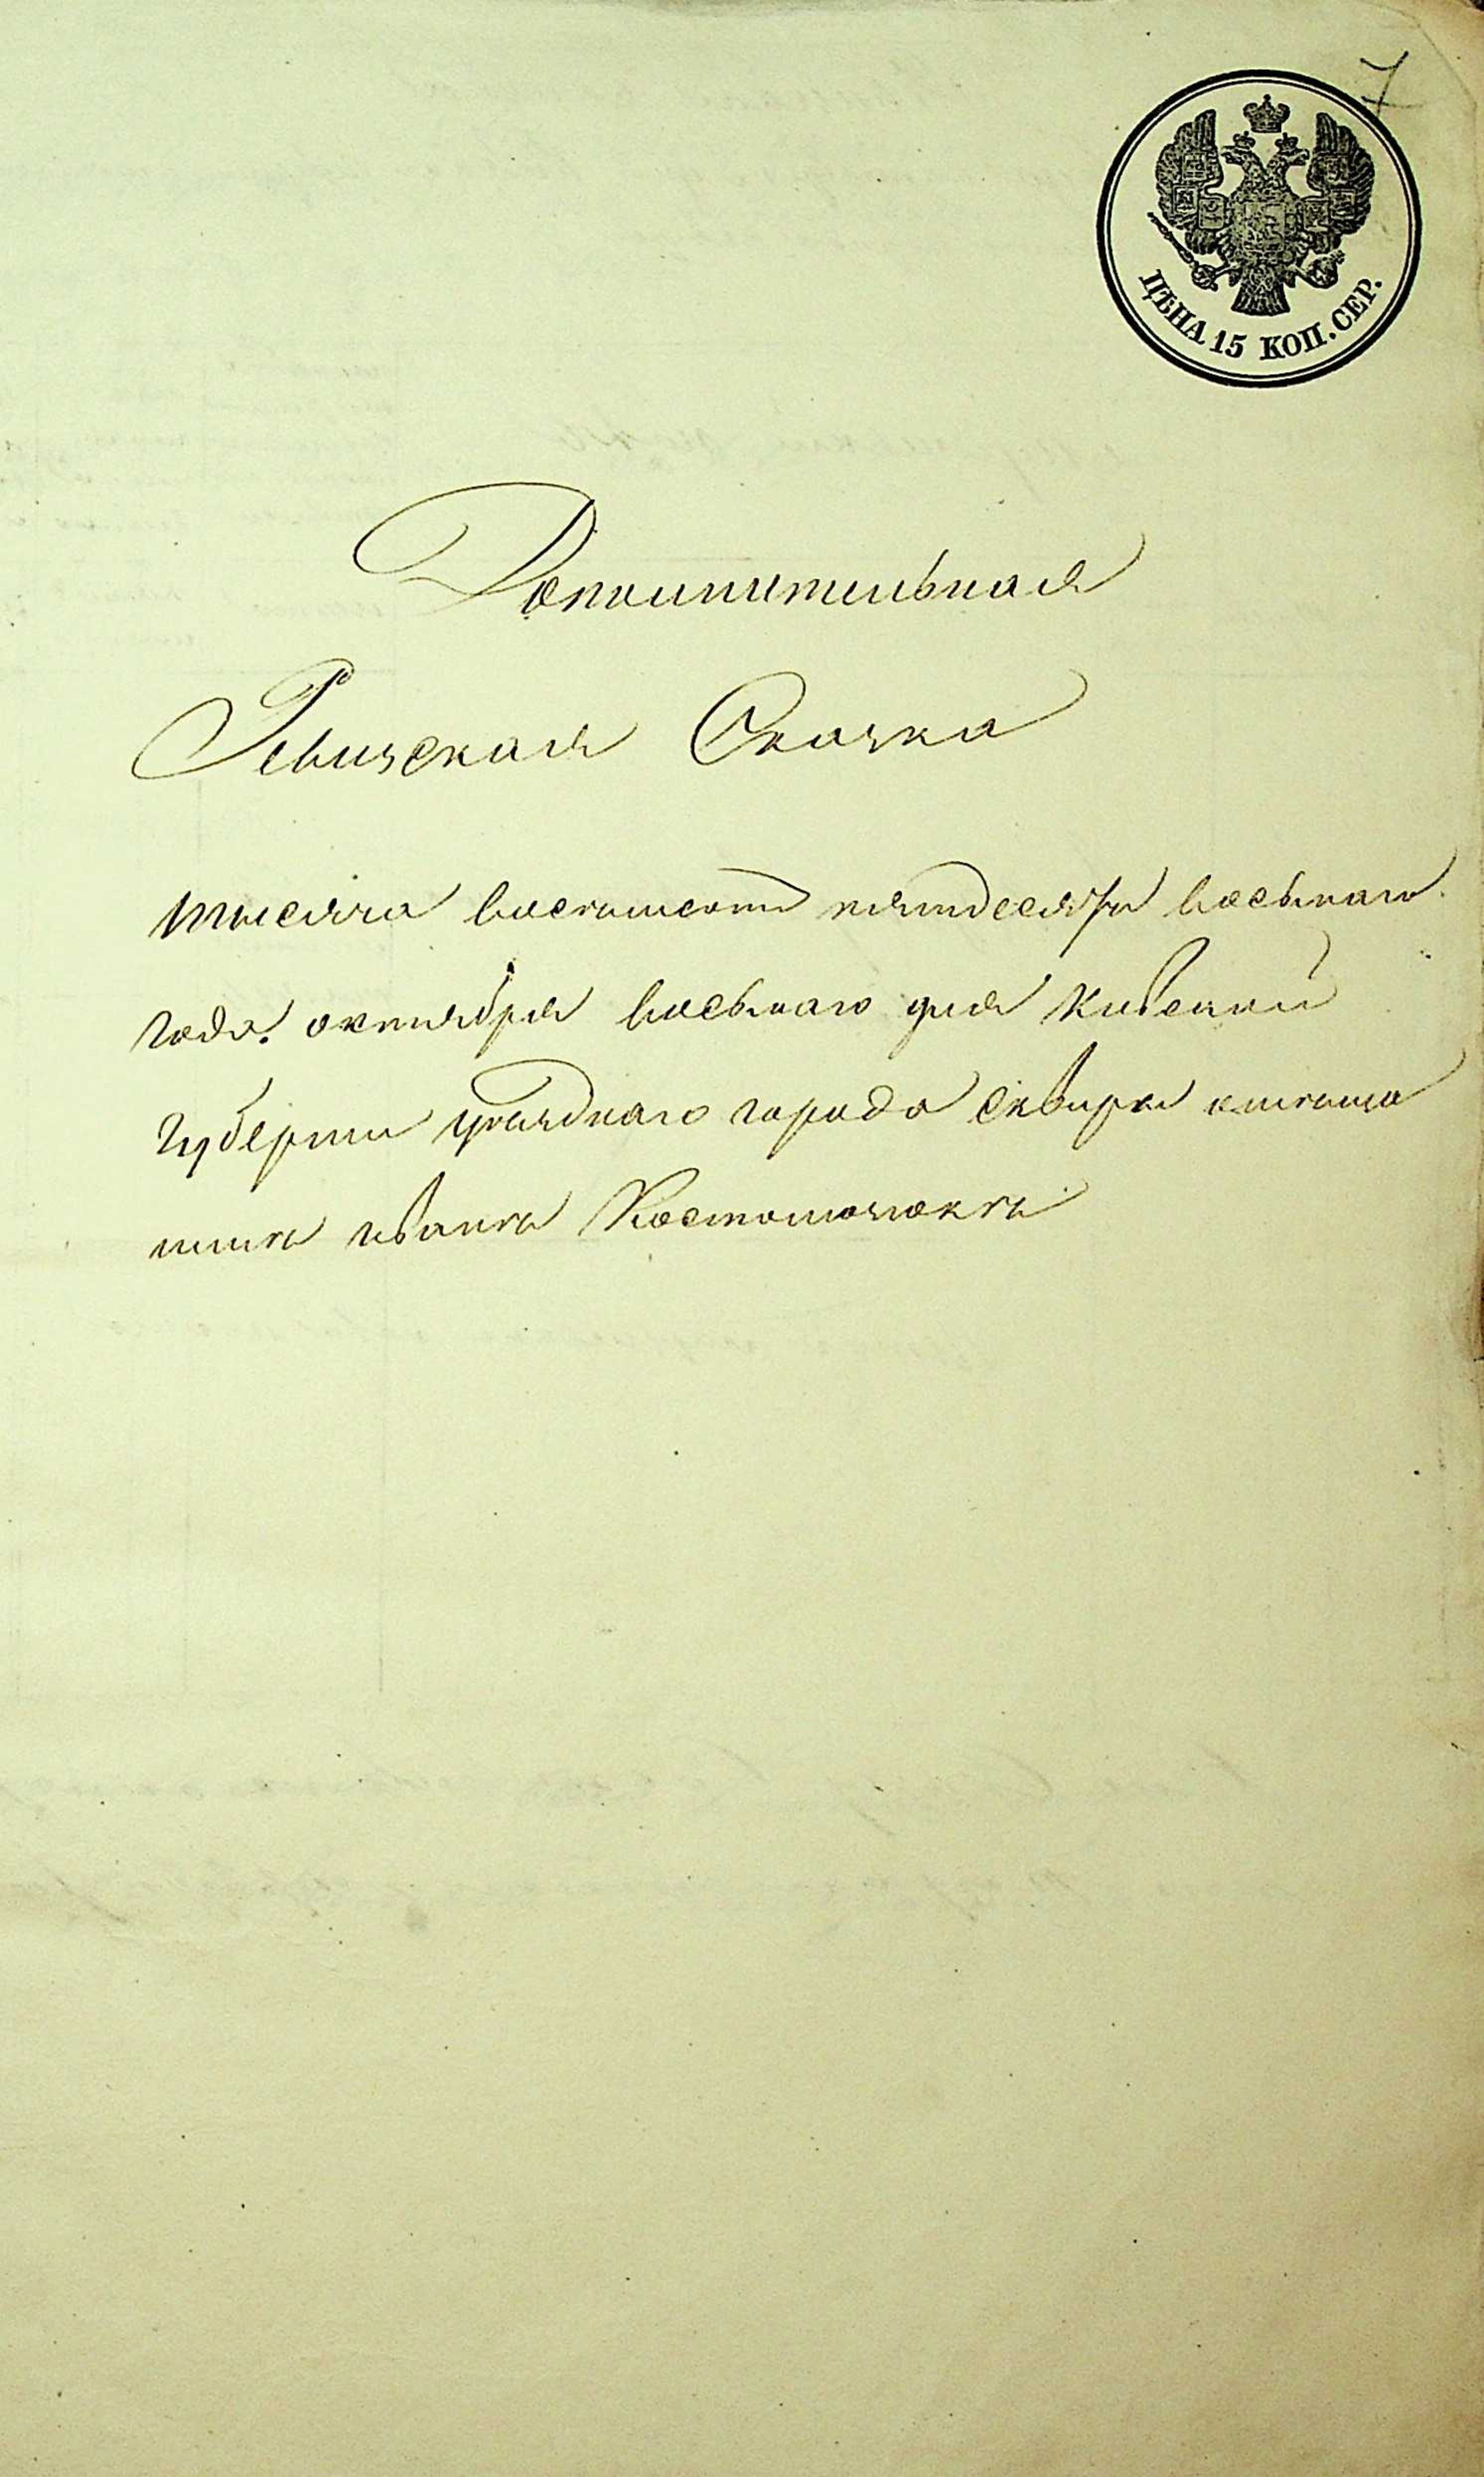 7
ЦѢНА 15 КОП. СЕР.
Дополнительная
Ревизская Сказка
тысяча восемьсотъ пятдесятъ восьмаго
года. октября восьмаго дня Киевской
Губернiи уѣзднаго города Сквиры
Ивана